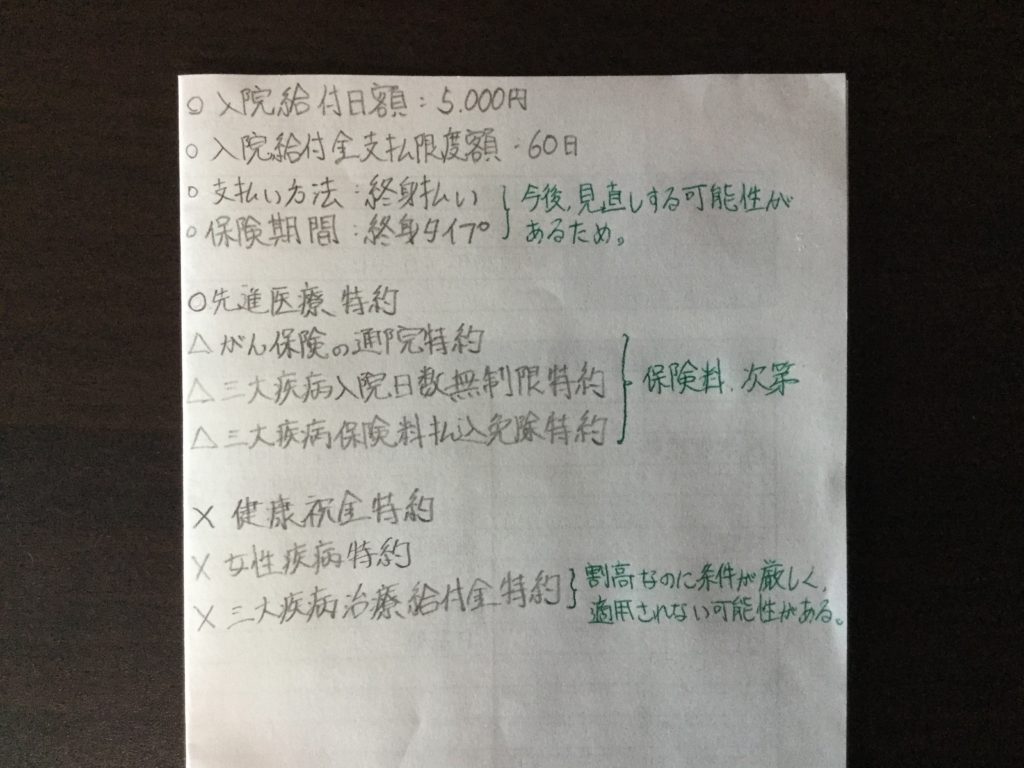 ○入院給付日額:5.000円
○入院給付金支払限度額・60日
○支払い方法:終身払い
○保険期間:終身タイプ
今後、見直しする可能性が
あるため。
○先進医療特約
△がん保険の通院特約
△三大疾病入院日数無制限特約
△三大疾病保険料払込免除特約
保険料、次第
×健康祝金特約
×女性疾病特約
×三大疾病治療給付金特約
割高なのに条件が厳しく、
適用されない可能性がある。